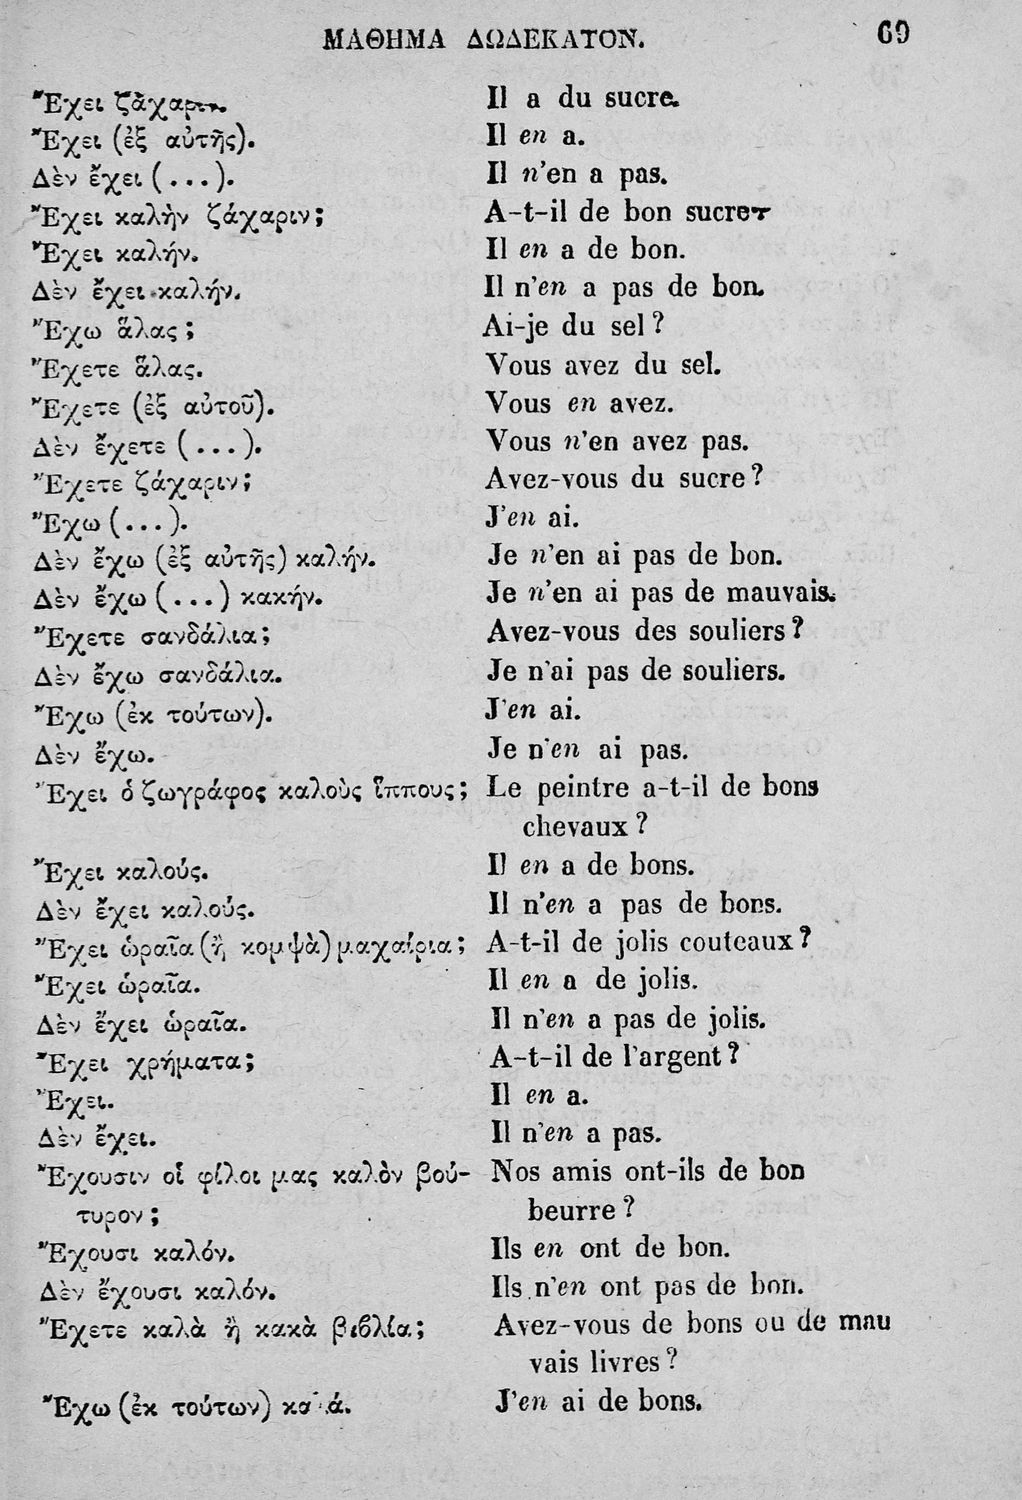 ΜΑΘΗΜΑ ΔΩΔΕΚΑΤΟΝ. 69
Ἔχει ζάχαριν. Il a du sucre.
Ἔχει (ἐξ αὐτῆς). Il en a.
Δὲν ἔχει (...). Il n'en a pas.
Ἔχει καλὴν ζάχαριν; A-t-il de bon sucre?
Ἔχει καλήν. Il en a de bon.
Δὲν ἔχει καλήν. Il n'en a pas de bon.
Ἔχω ἅλας; Ai-je du sel?
Ἔχετε ἅλας. Vous avez du sel.
Ἔχετε (ἐξ αὐτοῦ). Vous en avez.
Δὲν ἔχετε (...). Vous n'en avez pas.
Ἔχετε ζάχαριν; Avez-vous du sucre?
Ἔχω (...). J'en ai.
Δὲν ἔχω (ἐξ αὐτῆς) καλήν. Je n'en ai pas de bon.
Δὲν ἔχω (...) κακήν. Je n'en ai pas de mauvais.
Ἔχετε σανδάλια; Avez-vous des souliers?
Δὲν ἔχω σανδάλια. Je n'ai pas de souliers.
Ἔχω (ἐκ τούτων). J'en ai.
Δὲν ἔχω. Je n'en ai pas.
Ἔχει ὁ ζωγράφος καλοὺς ἵππους; Le peintre a-t-il de bons
chevaux?
Ἔχει καλούς. Il en a de bons.
Δὲν ἔχει καλούς. Il n'en a pas de bons.
Ἔχει ὡραῖα (ἢ κομψὰ) μαχαίρια; A-t-il de jolis couteaux?
Ἔχει ὡραῖα. Il en a de jolis.
Δὲν ἔχει ὡραῖα. Il n'en a pas de jolis.
Ἔχει χρήματα; A-t-il de l'argent?
Ἔχει. Il en a.
Δὲν ἔχει. Il n'en a pas.
Ἔχουσιν οἱ φίλοι μας καλὸν βού- Nos amis ont-ils de bon
τυρον; beurre?
Ἔχουσι καλόν. Ils en ont de bon.
Δὲν ἔχουσι καλόν. Ils n'en ont pas de bon.
Ἔχετε καλὰ ἢ κακὰ βιβλία; Avez-vous de bons ou de mau
vais livres?
Ἔχω (ἐκ τούτων) J'en ai de bons.